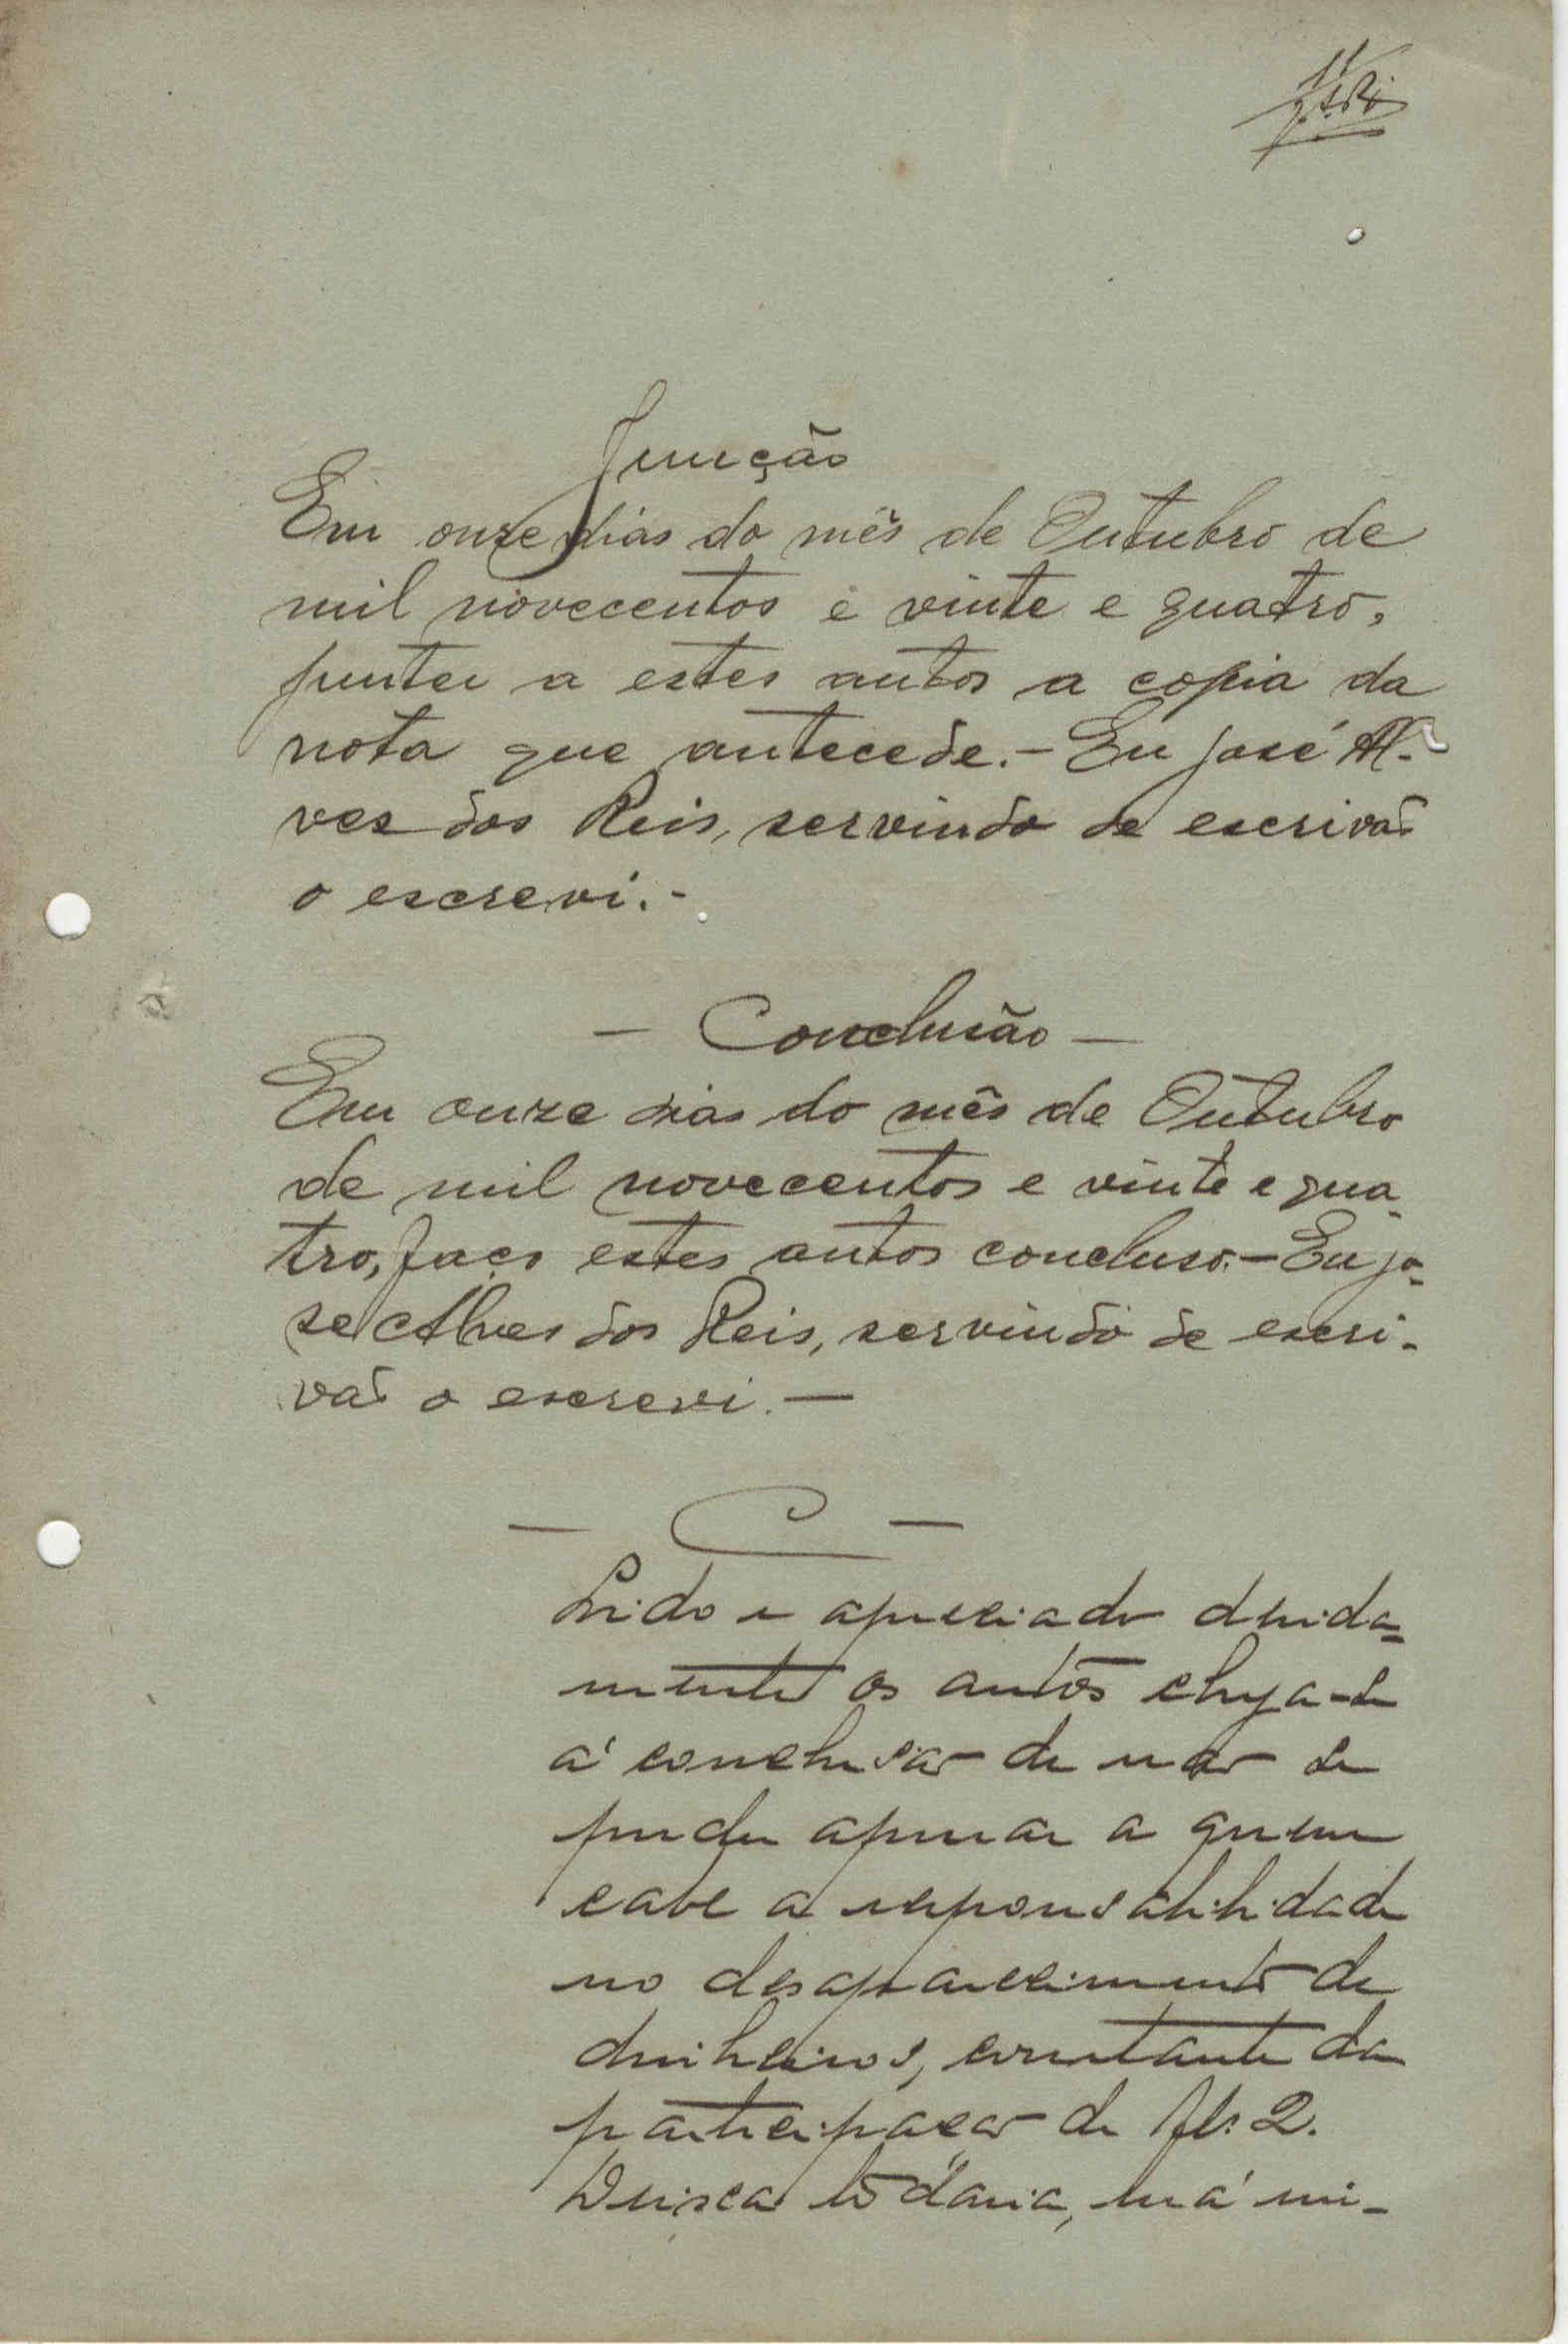 11
Junção
Em onze dias do mês de Outubro de
mil novecentos e vinte e quatro,
juntei a estes autos a copia da
nota que antecede.- Eu José Al-
ves dos Reis, servindo de escrivão
o escrevi.-
- Conclusão -
Em onze dias do mês de Outubro
de mil novecentos e vinte e qua-
tro, faço estes autos concluso.- Eu Jo-
sé Alves dos Reis, servindo de escri-
vão o escrevi.-
- C -
Lido e apreciado devida-
mente os autos chega-se
á conclusão de não se
puder apurar a quem
cabe a responsabilidade
no desaparecimento de
dinheiros, constante da
participação de fls. 2.
Deixa todavia, má im-